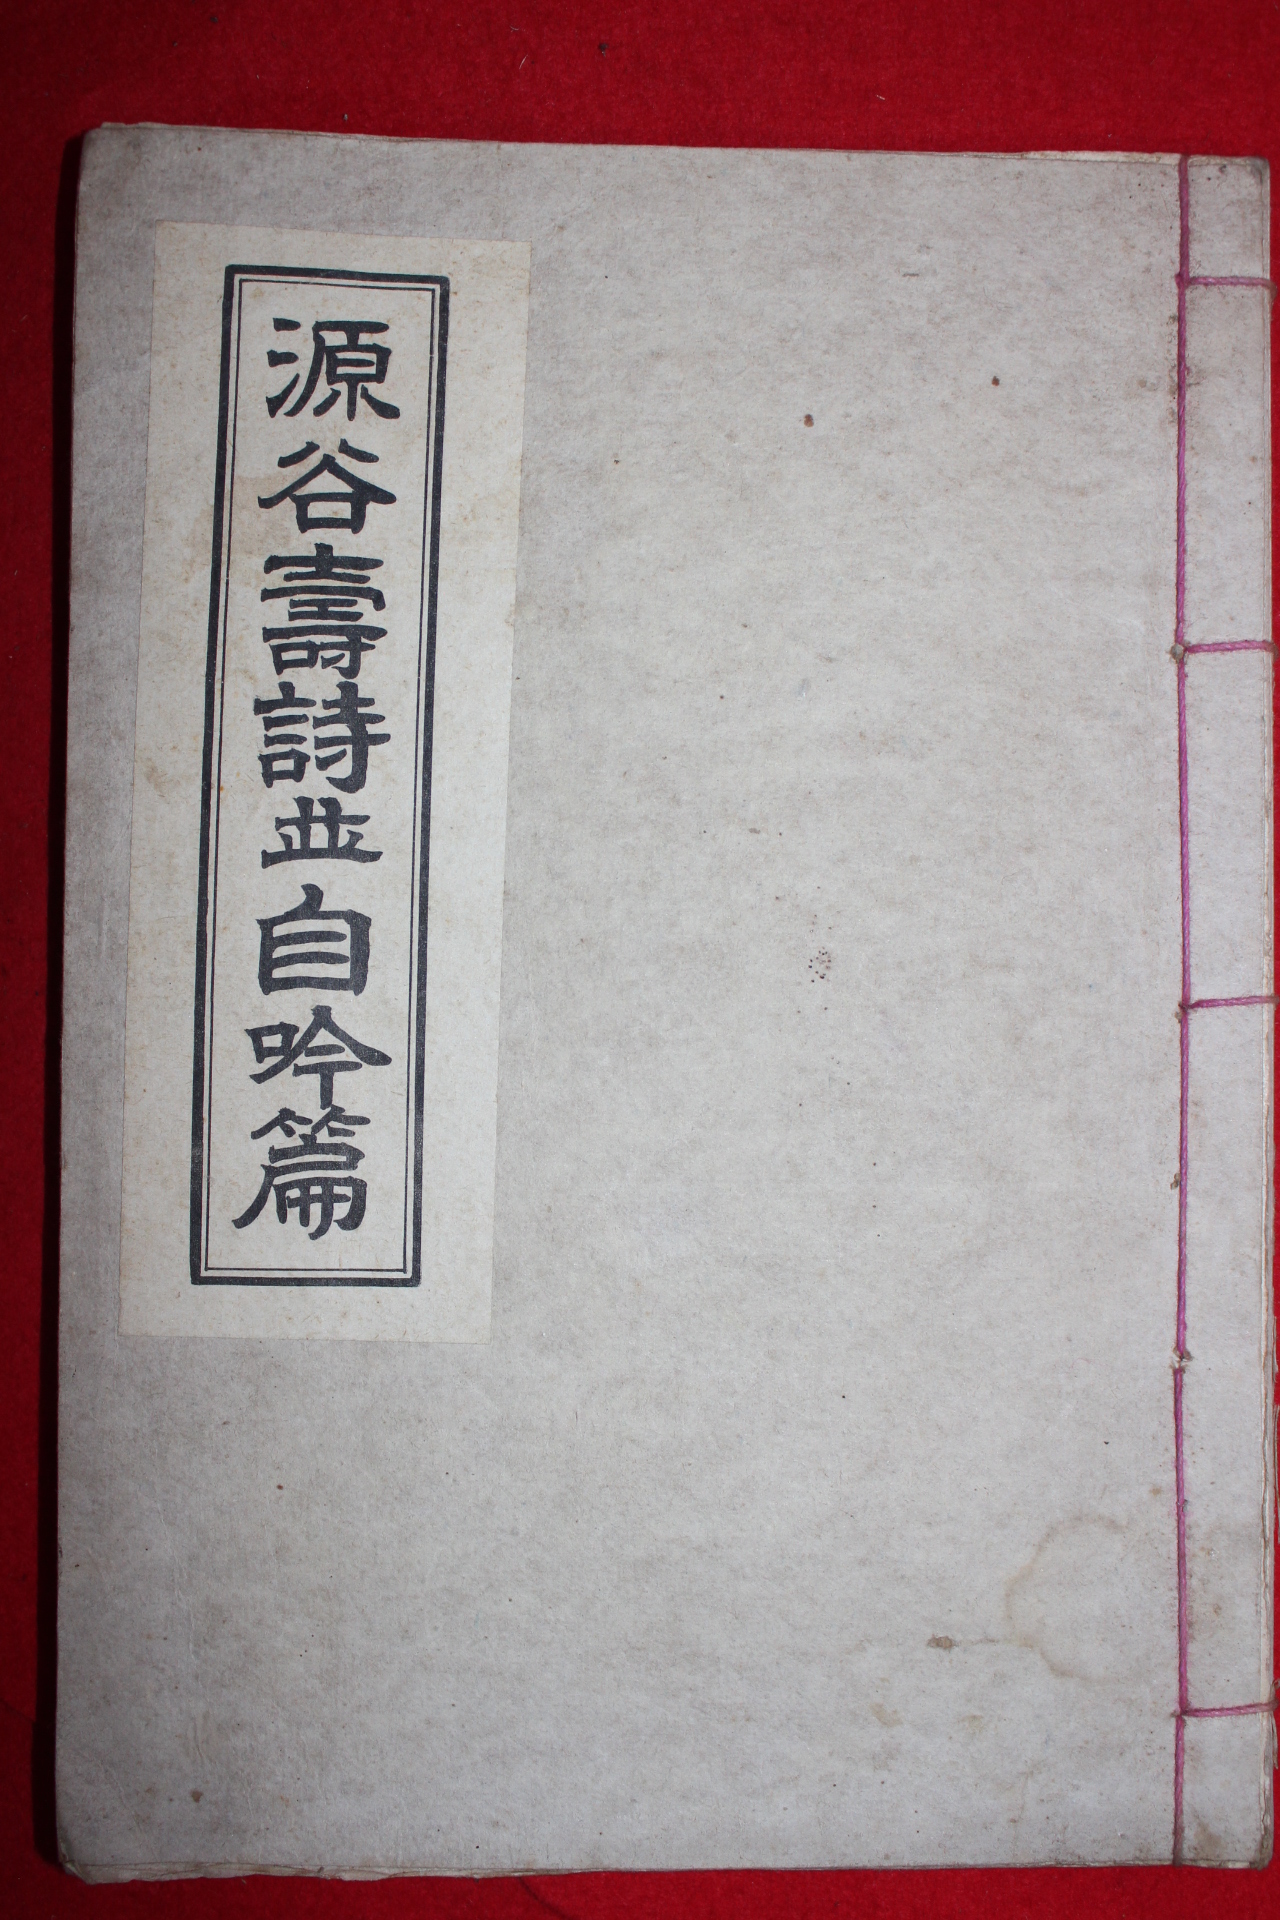 源谷壽詩並自吟篇